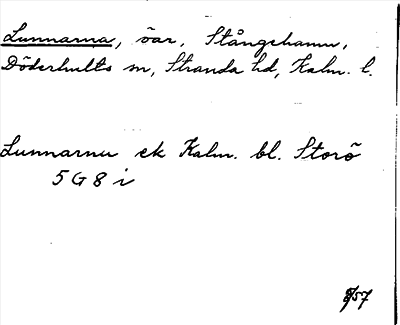 Lunnarna, öar, Stångehamn,
Döderhults sn, Stranda hd, Kalm. l.
Lunnarna ek Kalm. bl. Storö
5 G 8 i
57